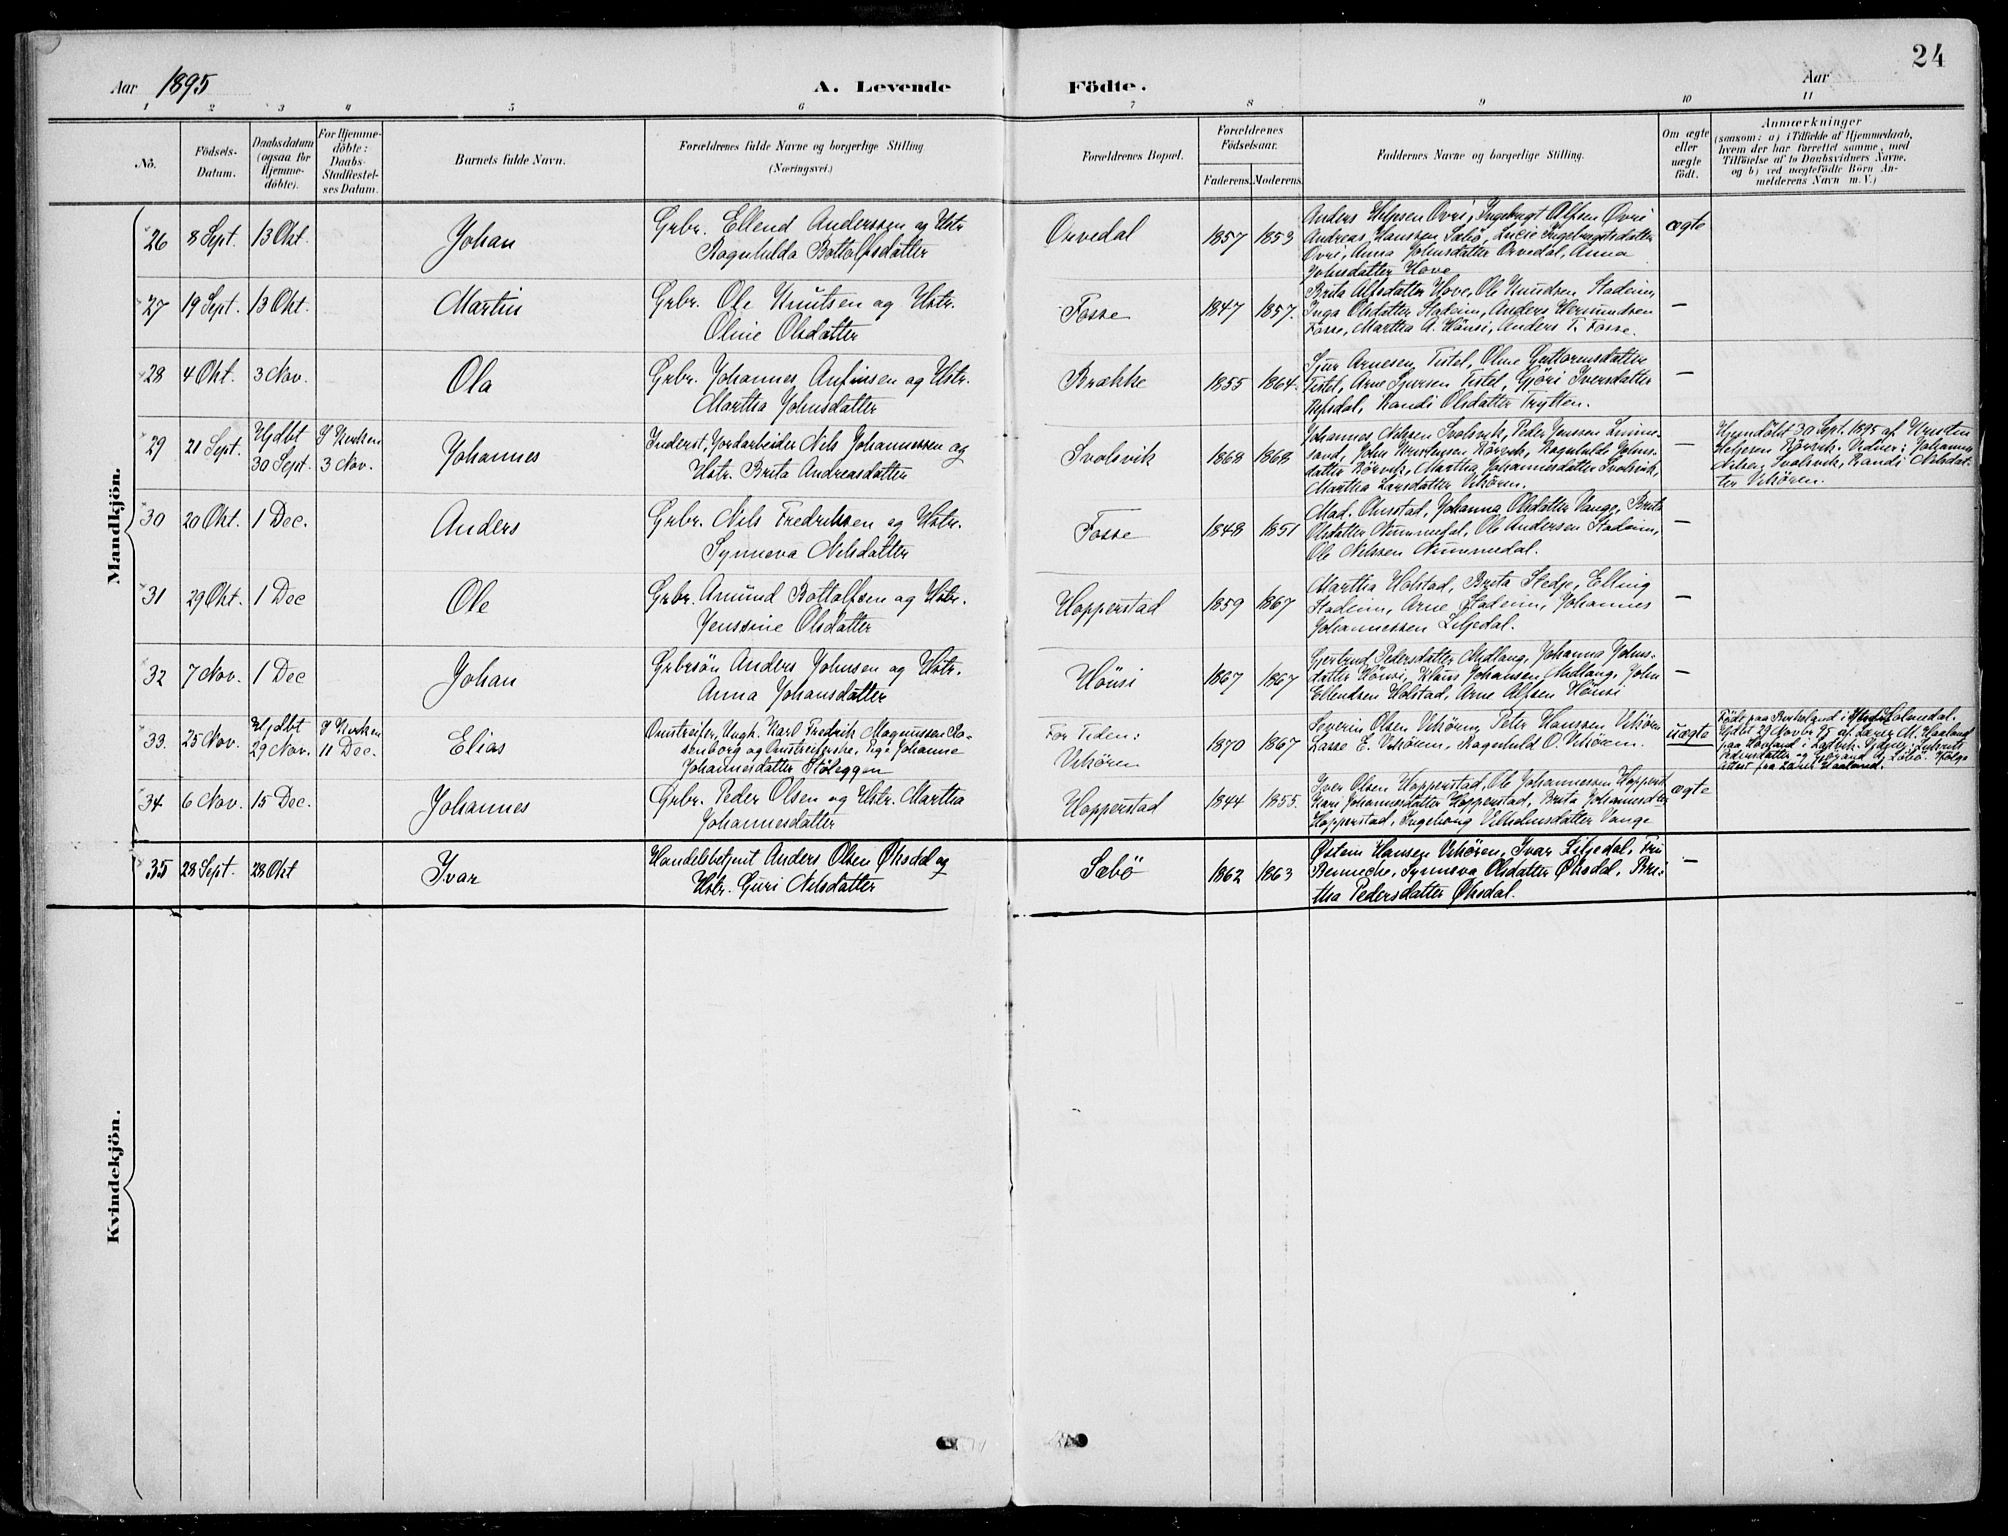 24
Aar 1895
A. Levende
Födte.
Aar
1 2 3 4 5 6 7 8 9 10 11
Nô.
Födsels-
Datum.
Daabsdatum
(ogsaa for
Hjemme-
döbte).
For Hjemme-
döbte:
Daabs-
Stadfæstel-
ses Datum.
Barnets fulde Navn.
Forældrenes fulde Navne og borgerlige Stilling
(Næringsvei.)
Forældrenes Bopæl.
Forældrenes
Födselsaar.
Faderens. Moderens.
Faddernes Navne og borgerlige Stilling.
Om ægte
eller
uægte
födt.
Anmærkninger
(saasom: a) i Tilfælde af Hjemmedaab,
hvem der har forrettet samme, med
Tilföielse af to Daabsvidners Navne,
og b) ved uægtefödte Börn An-
melderens Navn m. V.)
Mandkjön.
26 8 Sept. 13 Okt. Johan
Grbr. Ellend Anderssen og Hstr.
Ragnhilda Bottolfsdatter
Orvedal 1857 1853
Anders Heljesen Øvri, Ingebrigt Alfsen Øvri
Andreas Hanssen Sæbö, Lucie Ingebrigtsdatter
Øvri, Anna Johnsdatter Orvedal, Anna
Johnsdatter Hove
ægte
27 19 Sept. 13 Okt. Martin
Grbr. Ole Knutsen og Hstr.
Oline Olsdatter
Fosse 1847 1857.
Brita Alfsdatter Hove, Ole Knudsen Stadeim,
Inga Olsdatter Stadeim, Anders Hermundsen
Fosse, Martha A. Hönsi, Anders T. Fosse.
—
28 4 Okt. 3 Nov. Ola
Grbr. Johannes Anfinsen og Hstr.
Martha Johnsdatter
Brække 1855 1864.
Sjur Arnesen Tistel, Oline Guttormsdatter
Tistel, Arne Sjursen Tistel, Gjöri Iversdatter
Refsdal, Randi Olsdatter Trytten.
—
29 21 Sept. Hjdbt
30 Sept. I Kirken
3 Nov. Johannes
Inderst, Jordarbeider Nils Johannessen og
Hstr. Brita Andreasdatter
Svolsvik 1868 1868
Johannes Nilsen Svolsvik, Peder Jenssen
sand, John Kristensen Rörvik, Ragnhilde Johns-
datter Rörvik, Martha Johannesdatter Svolsvik,
Martha Larsdatter Vikören.
—
Hjemdöbt 30 Sept. 1895 af Kristen
Heljesen Rörvik. Vidner: Johannes
Nilsen Svolsvik, Randi Nilsdat-
ter Vikören.
30 20 Okt. 1 Dec. Anders
Grbr. Nils Fredriksen og Hstr.
Synneva Nilsdatter
Fosse 1848 1851
Mad. Onstad, Johanna Olsdatter Vange, Brita
Olsdatter Nummedal, Ole Andersen Stadeim,
Ole Nilssen Nummedal.
—
31 29 Okt. 1 Dec Ole
Grbr. Amund Bottolfsen og Hstr.
Jenssine Olsdatter
Hopperstad 1859 1867
Martha Holstad, Brita Stedje, Elling
Stadeim, Arne Stadeim, Johannes
Johannessen Liljedal.
—
32 7 Nov. 1 Dec Johan
Grbrsön Anders Johnsen og Hstr.
Anna Johansdatter
Hönsi 1867 1867
Gjertrud Pedersdatter Midlang, Johanna Johns-
datter Hönsi, Klaus Johansen Midlang, John
Ellendsen Holstad, Arne Alfsen Hönsi
—
33. 25 Nov. Hjdbt
29 Nov. I Kirken
11 Dec. Elias
Omstreifer, Ungk. Karl Fredrik Magnussen Ro-
senborg og Omstreiferske, Pige Johanne
Johannesdatter Stöleggen
For Tiden:
Vikören 1870 1867
Severin Olsen Vikören, Peter Hanssen Vikören
Lasse E. Vikören, Ragnhild O. Vikören.
uægte
Födt paa
Hjdbt 29 Novbr. 95 af Lærer M. Haaland
Pedersdatter og
attest fra Lærer Haaland.
34 6 Nov. 15 Dec. Johannes
Grbr. Peder Olsen og Hstr. Martha
Johannesdatter
Hopperstad 1844 1855.
Iver Olsen Hopperstad, Ole Johannessen Hopperst.
Kari Johannesdatter Hopperstad, Brita Johannesdter
Hopperstad, Ingeborg Vilhelmsdatter Vange
ægte
35 28 Sept. 28 Okt Ivar
Handelsbetjent Anders Olsen Øksdal og
Hstr. Guri Nilsdatter
Sæbö 1862 1863
Østein Hansen Vikören, Ivar Liljedal, Fru
Benneche, Synneva Olsdatter Øksdal, Bri-
tha Pedersdatter Øksdal.
—
Kvindekjön.